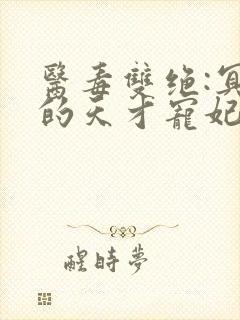 醫毒雙绝:冥
的天才寵妃
醒時夢